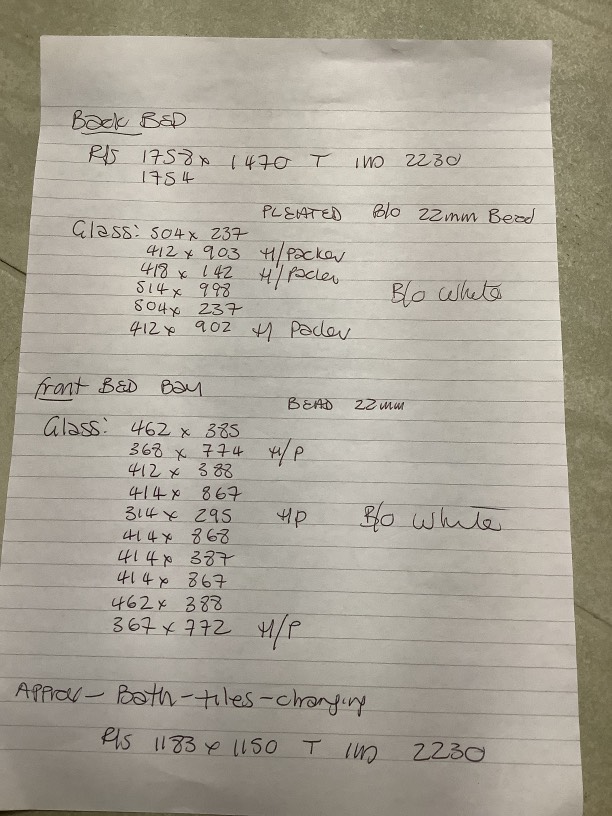 Back BED
R/S 1758 x 1470 T IND 2230
1754
PLEATED B/o 22mm Bead
Glass: 504 x 237
412 x 903 H/Packer
418 x 142 H/Packer
514 x 998
504 x 237
412 x 902 H Packer
B/o White
front BED Bay
BEAD 22mm
Glass: 462 x 385
368 x 774 H/P
412 x 388
414 x 867
314 x 295 HP B/o White
414 x 868
414 x 387
414 x 867
462 x 388
367 x 772 H/P
APPROX - Bath - tiles - changing
R/S 1183 x 1150 T IND 2230